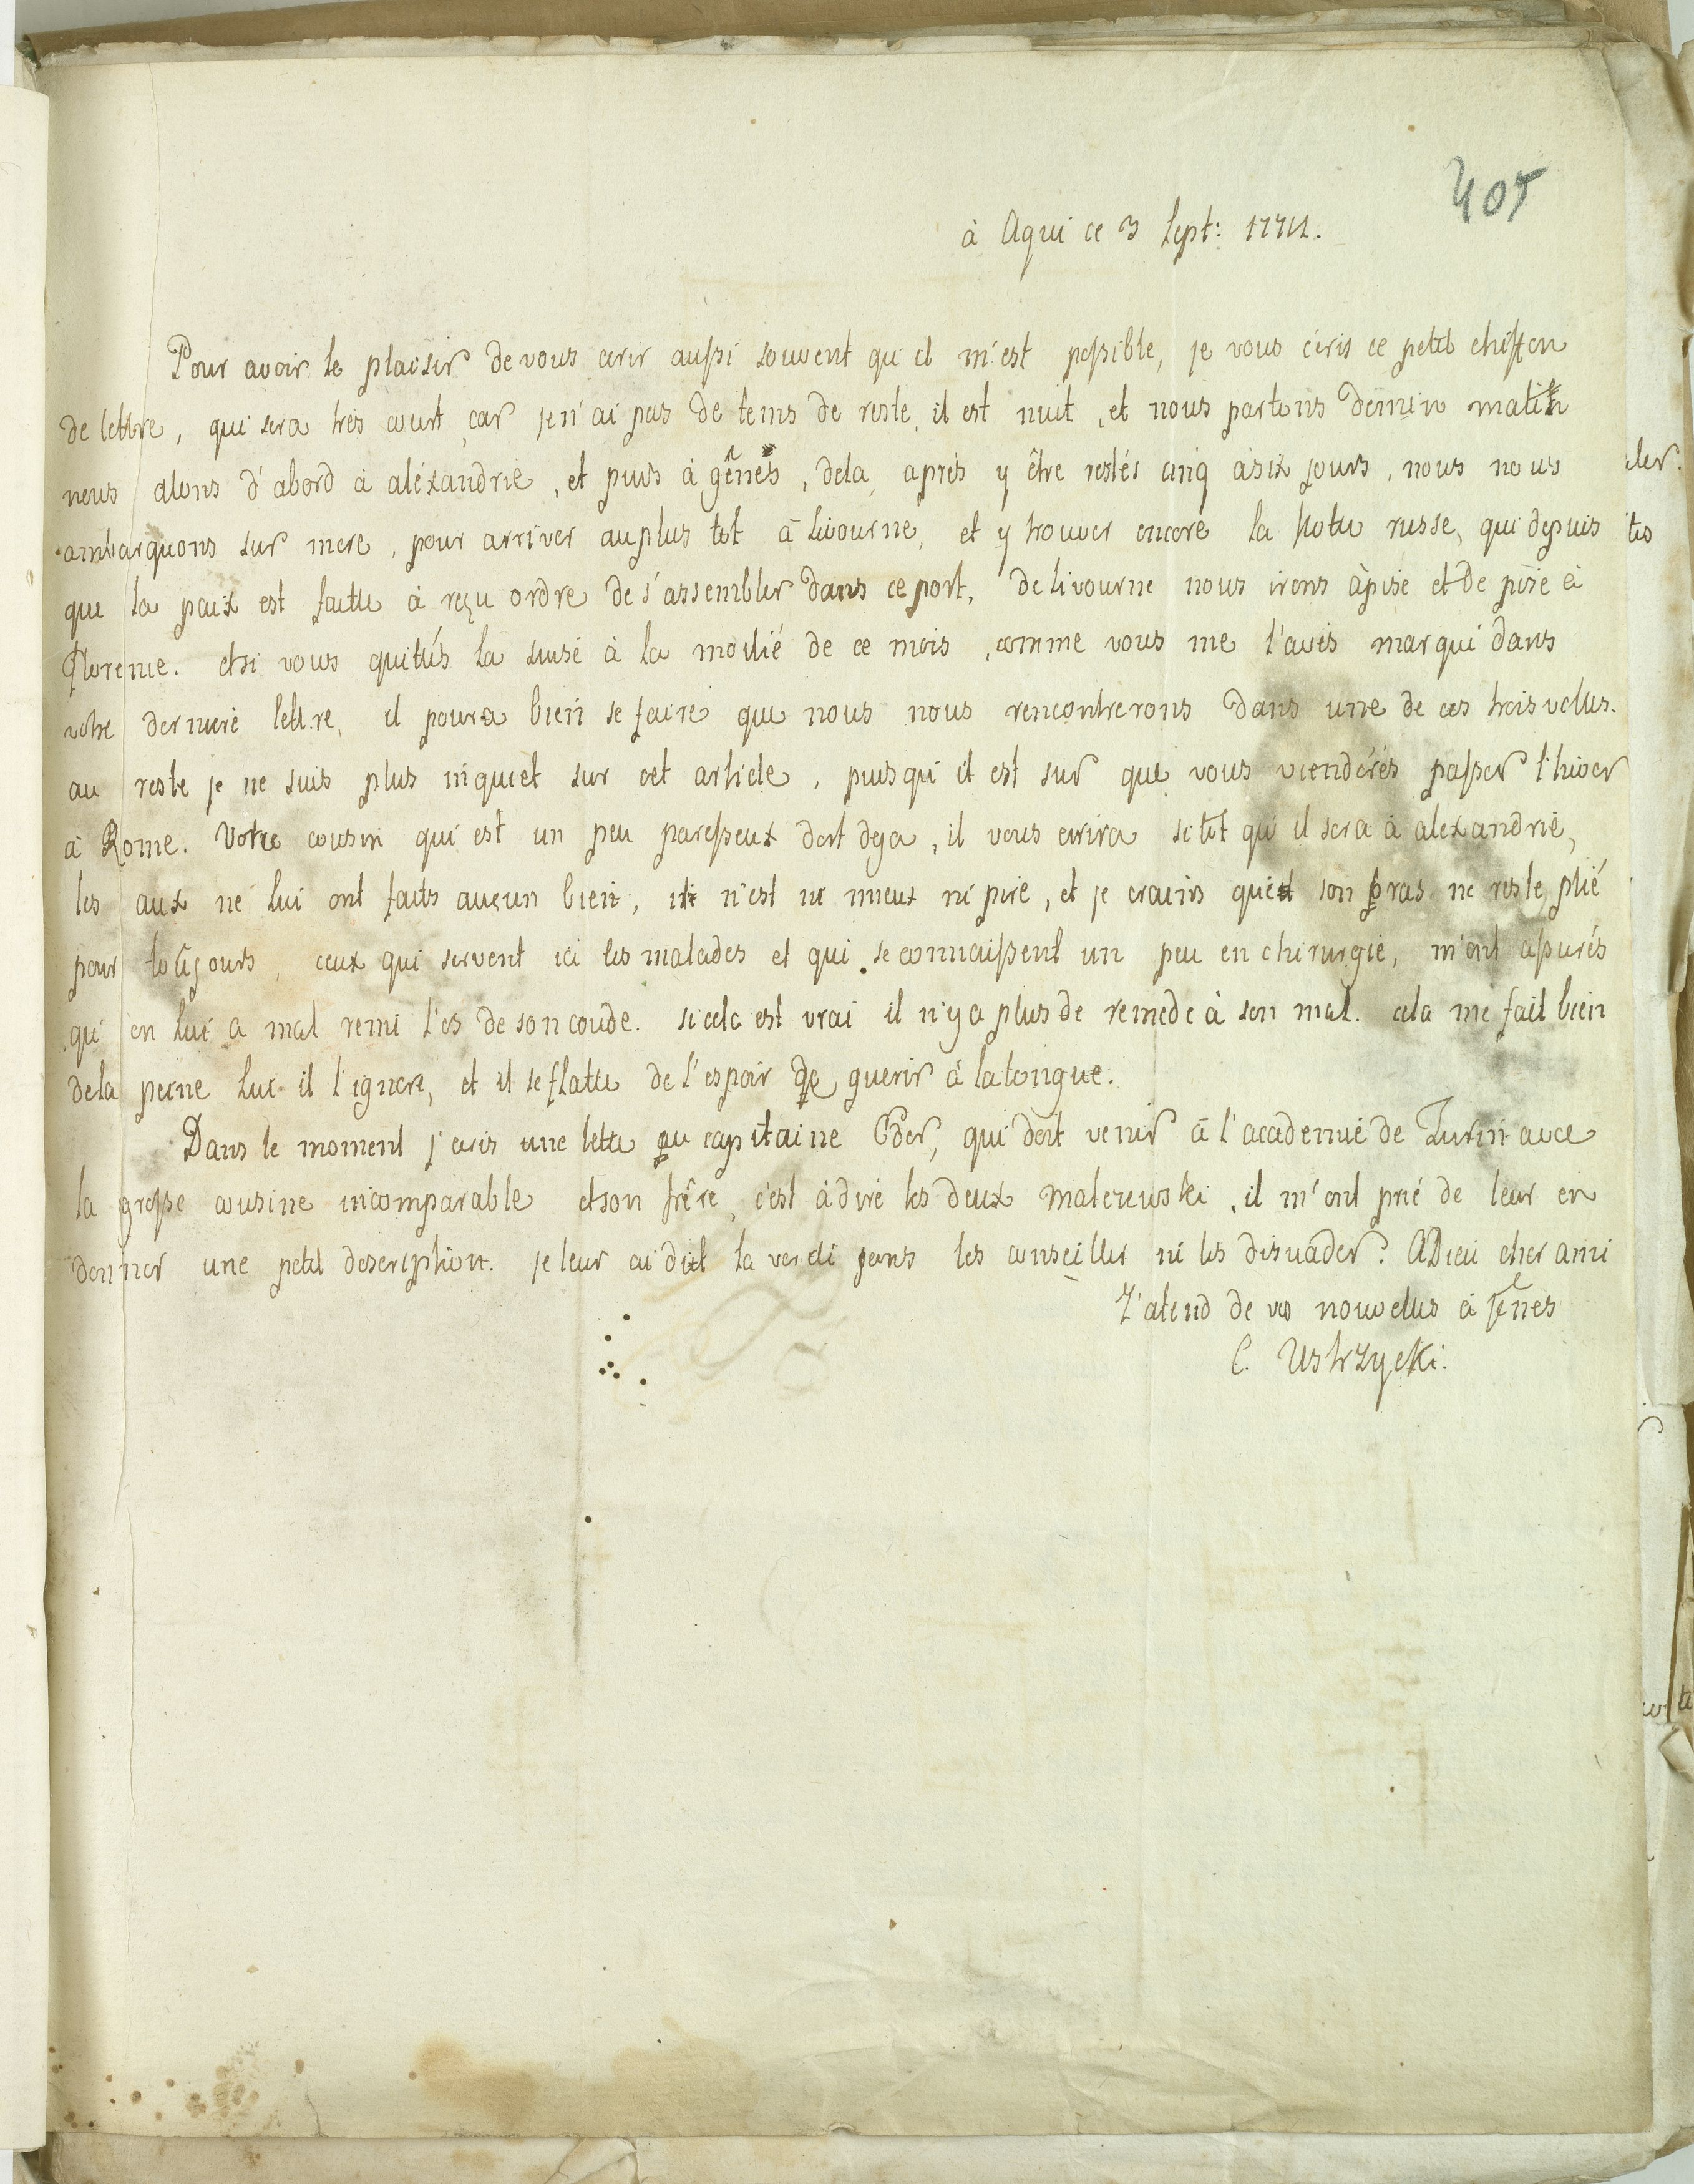 405
à Aqui ce 3 Sept: 1774.
Pour avoir le plaisir de vous ecrir aussi souvent qu'il m'est possible, je vous écris ce petit chiffon
de lettre, qui sera très court, car je n'ai pas de tems de reste, il est nuit, et nous partons demin matin
nous alons d'abord à aléxandrie, et puis à gênes, dela, aprés y être restés cinq à six jours, nous nous
ambarquons sur mere, pour arriver auplus tot à Livourne, et y trouver encore la flote russe, qui depuis
que la paix est faite à reçu ordre de s'assembler dans ce port, de livourne nous irons à pise et de pise à
Florence. et si vous quités la suise à la moitié de ce mois, comme vous me l'avés marqué dans
votre derniere lettre, il poura bien se faire que nous nous rencontrerons dans une de ces trois villes.
au reste je ne suis plus inquiet sur cet article, puis qu'il est sur que vous viendérés passer l'hiver
à Rome. Votre cousin qui est un peu paresseux dort deja, il vous ecrira sitot qu'il sera à alexandrie,
les aux ne lui ont faits aucun bien, il n'est ni mieux ni pire, et je crains que son bras ne reste plié
pour toujours, ceux qui servent ici les malades et qui se connaissent un peu en chirurgie, m'ont assurés
qu'on lui a mal remi l'os de son coude. si cela est vrai il n'y a plus de remede à son mal. cela me fait bien
dela peine lui il l'ignore, et il se flatte de l'espoir de guerir à la longue.
Dans le moment j'ecris une lettre au capitaine Oder, qui doit venir à l'academie de Turin avec
la grosse cousine incomparable et son frêre, c'est à dire les deux Malczewski, il m'ont prié de leur en
donner une petit description. je leur ai dit la verdi sans les conseiller ni les disuader. ADieu cher ami
J'atend de vos nouvelles à Jênes
C. Ustrzycki.